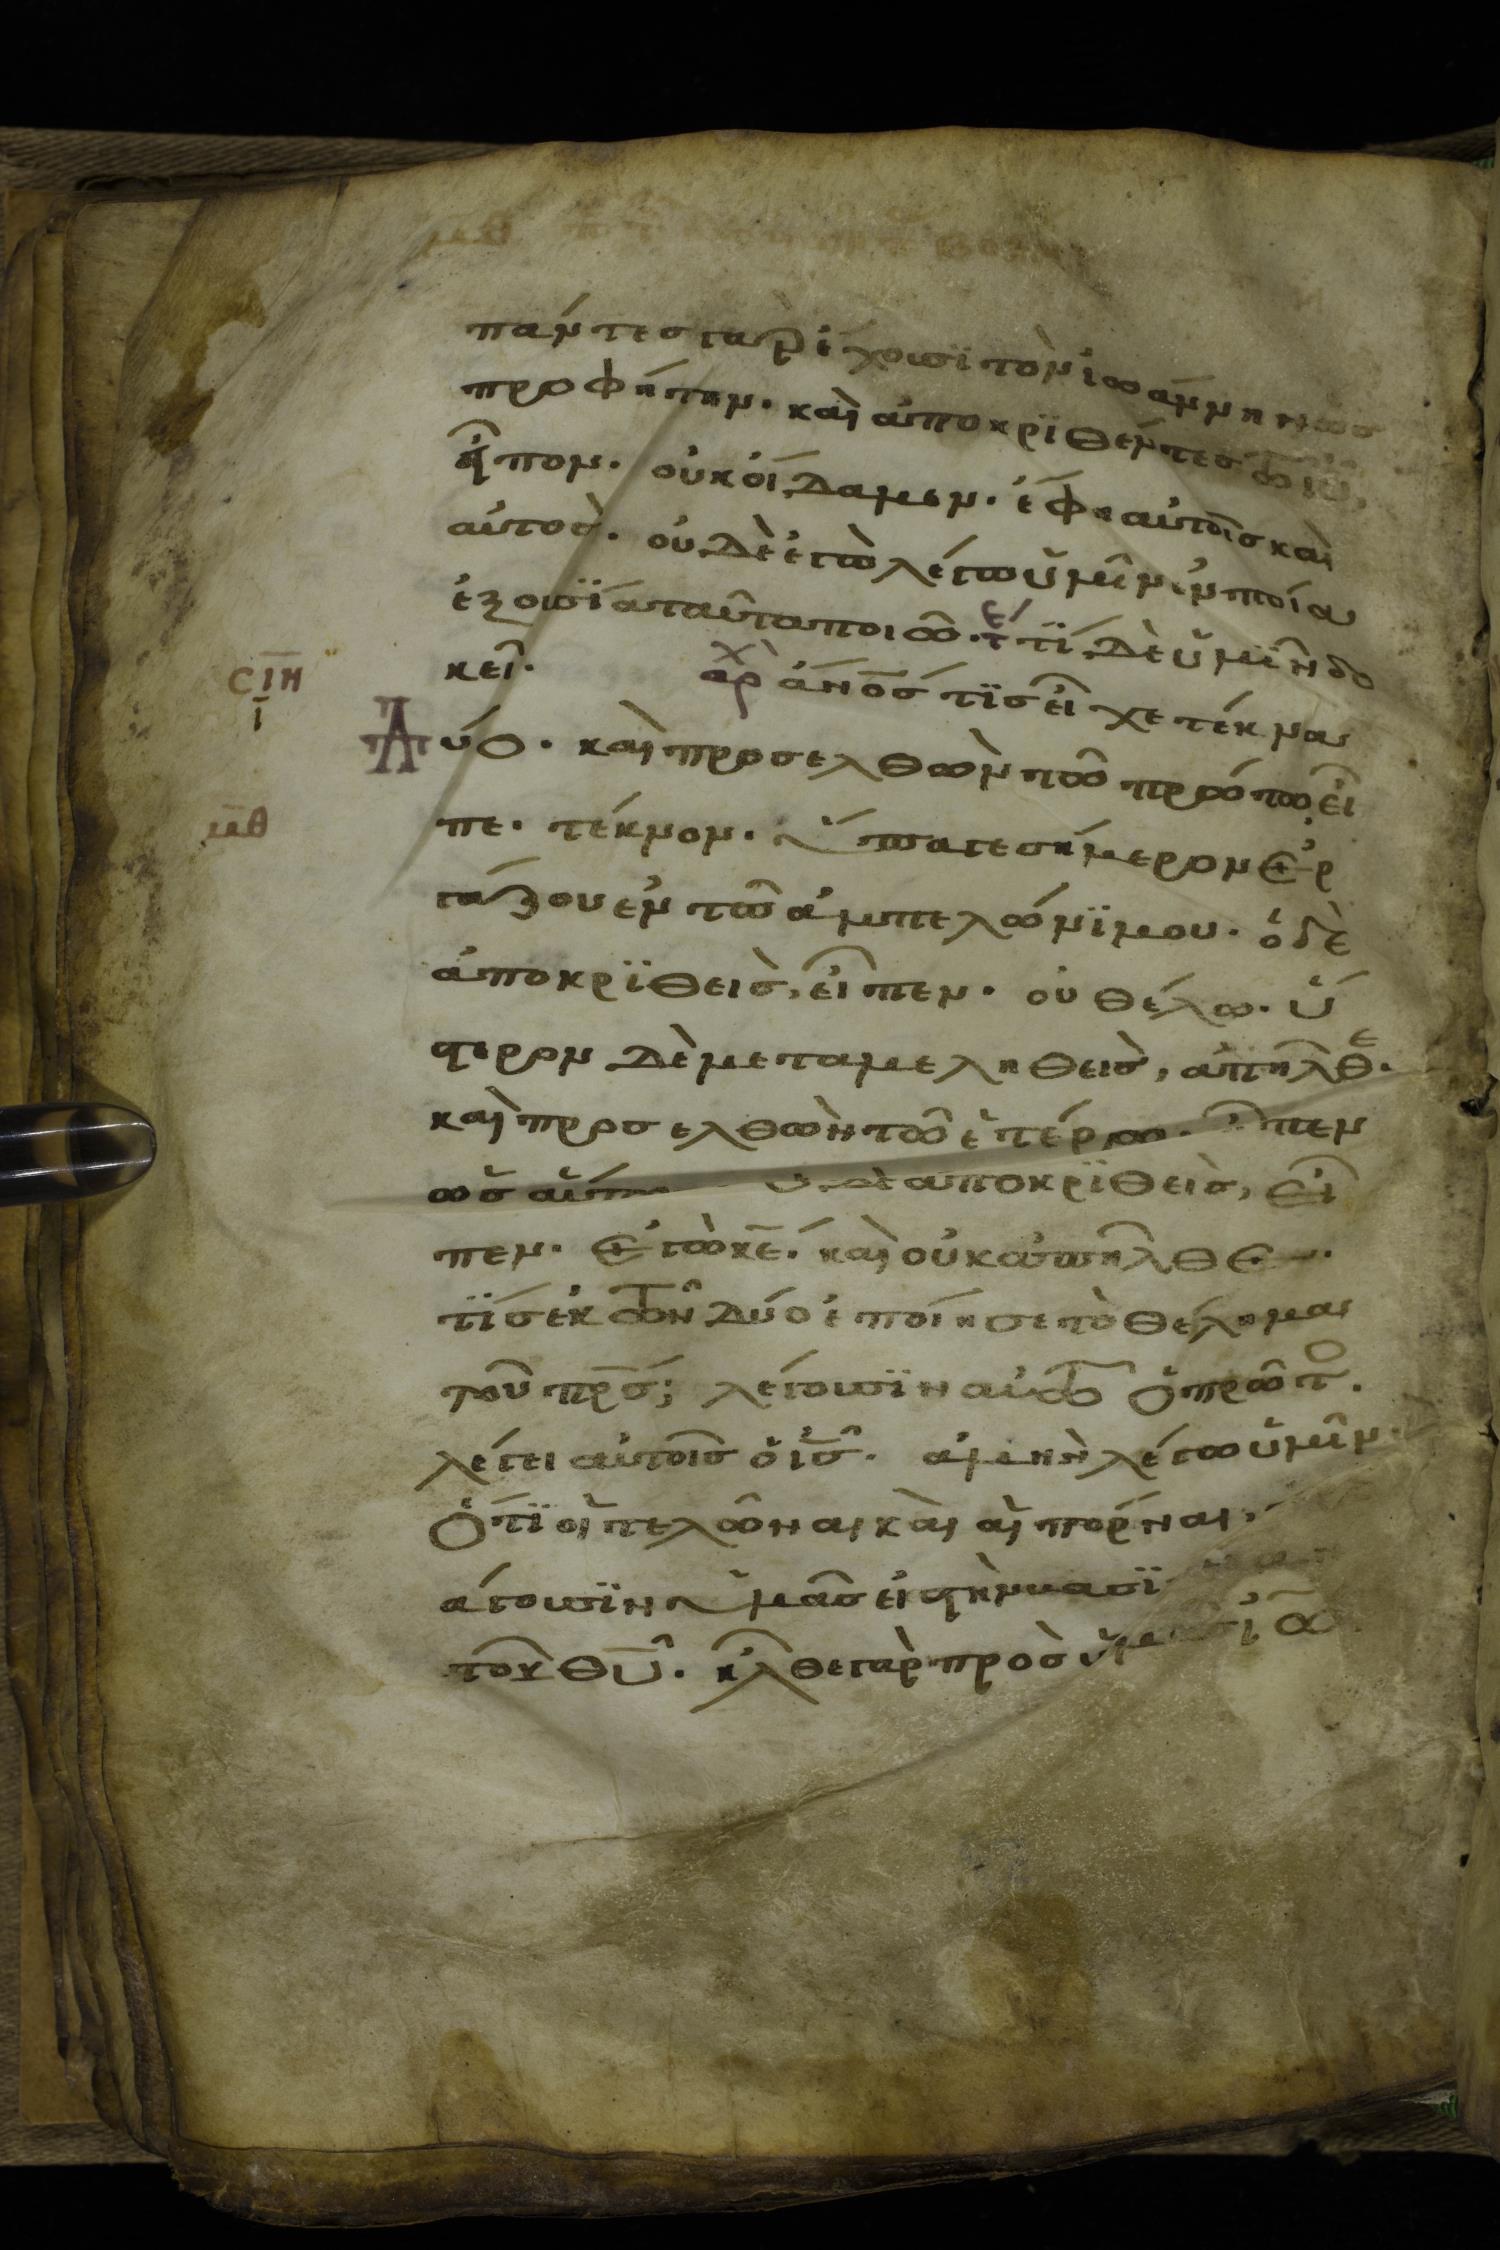 πάντες γὰρ ἔχουσϊ τὸν ἰωάννην ὡς
προφήτην. καὶ ἀποκρϊθέντες τῶ ιῦ,
εἶπον. οὐκ οἴδαμεν. ἔφη αὐτοῖς καὶ
αὐτὸς. οὐδὲ ἐγὼ λέγω ὑμῖν ἐν ποία
ἐξουσϊα ταῦτα ποιῶ. τϊ δὲ ὑμῖν δο
κεῖ. ἀρχ ἄνο̅σ τϊς εἶχε τέκνα
σιη
ι
Δύο. καὶ προσελθὼν τῶ πρώτω εἶ
μθ
πε. τέκνον. ὕπαγε σήμερον ἐρ
γάζου ἐν τῶ ἀμπελώνϊ μου. ὁ δὲ
ἀποκρϊθεὶς, εἶπεν. οὐ θέλω. ὕ
στερον δὲ μεταμεληθεὶς, ἀπῆλθε.
καὶ προσελθὼν τῶ ἑτέρω. εἶπεν
ὡσαύτως ὁ δὲ ἀποκρϊθεὶς, εἶ
πεν. ἐγὼ κε̅. καὶ οὐκ ἀπῆλθεν.
τϊς ἐκ τῶν δύο ἐποίησε τὸ θέλημα
τοῦ πρ̅ς; λέγουσϊν αὐτῶ ὁ πρῶτο.
λέγει αὐτοῖς ὁ ις̅. ἀμὴν λέγω ὑμῖν.
ὅτϊ οἱ τελῶναι καὶ αἱ πόρναι,
άγουσϊν ὑμᾶς εἰς τὴν βασϊ
τοῦ θυ̅. ἦλθε γὰρ πρὸς ὑμᾶς ἰω